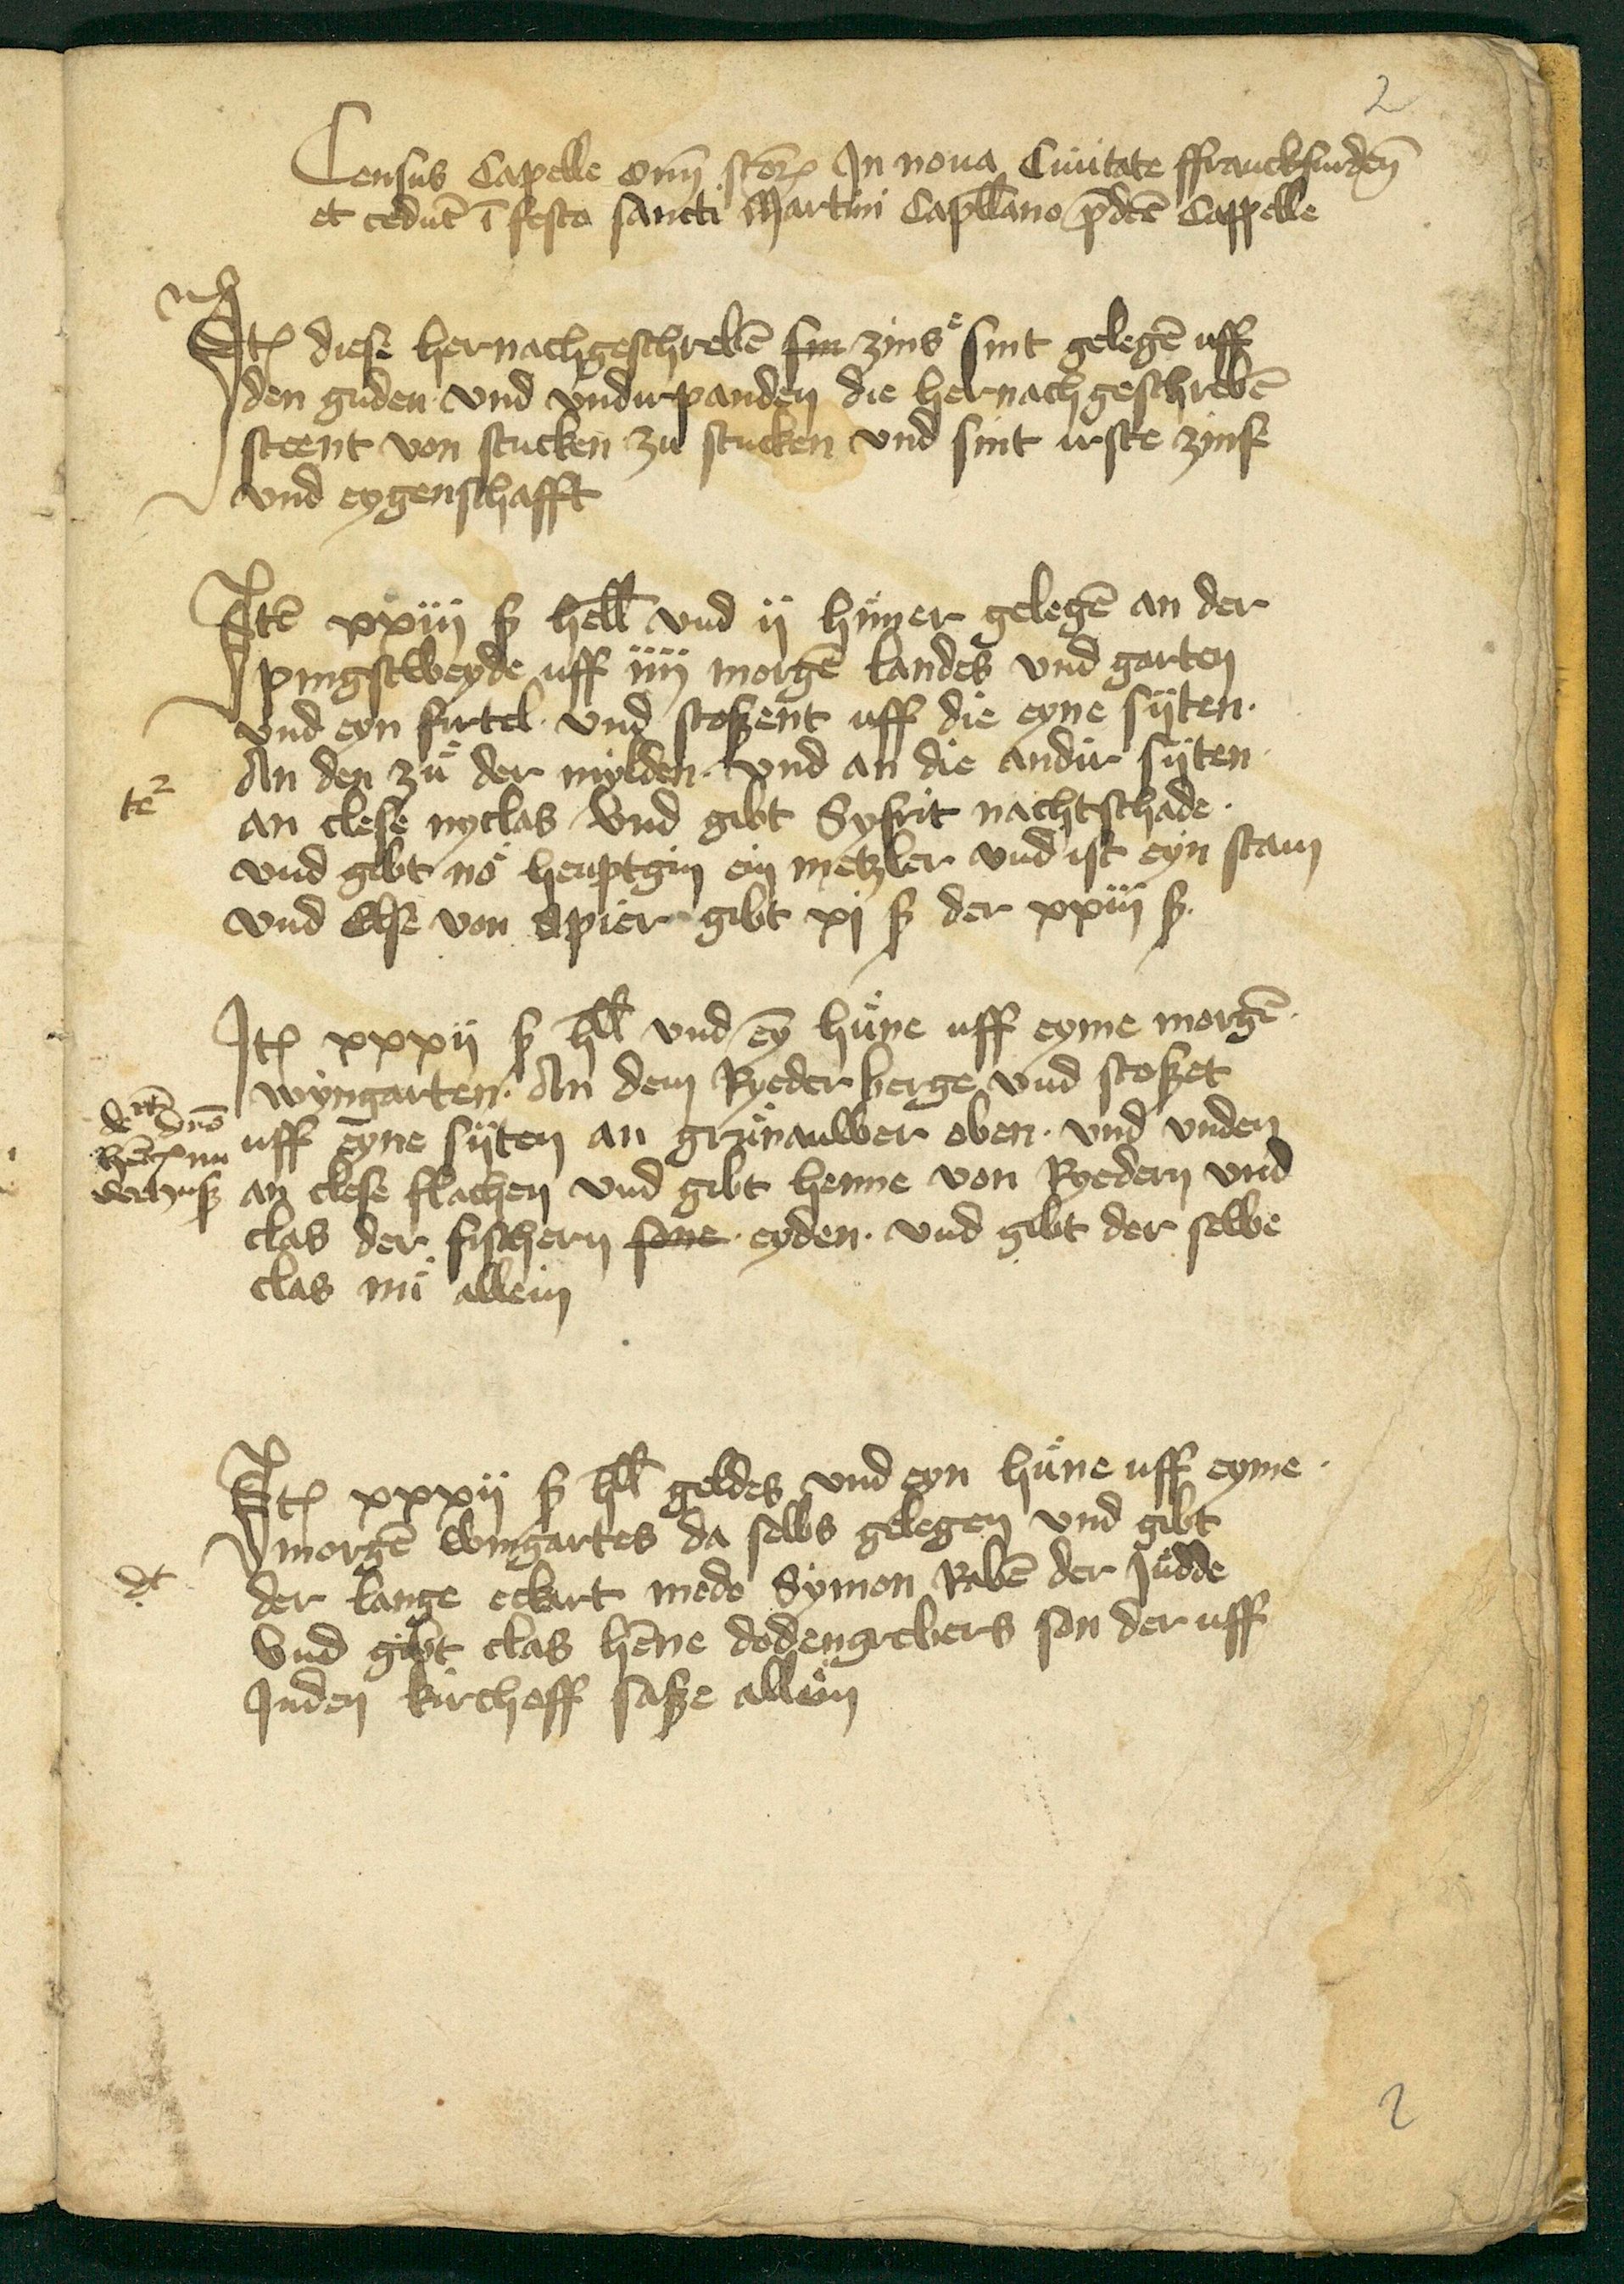 2
Census Capelle om̄ sctōꝝ In noua Ciuitate ffranckfurden̄
et cedūt ī festo sancti Martini Capll̄ano p̄dcē Cappelle
Itꝫ diese hernachgeschrebē sin zinsͤ sint gelegē uff
den guden vnd vndirpanden die hernach geschrebē
steent von stucken zu stucken vnd sint irste zinse
vnd eygenschafft
Itē xxiij ß hell̄ vnd ij huͤner gelegē an der
pingstweyde uff iiij morgē landes vnd garten
vnd eyn firtel· vnd stoßent uff die eyne sijten·
An den zuͤ der mylden· vnd an die andir sijten·
an clese nyclas vnd gibt Syfrit nachtschade·
vnd gibt noͤ heuptgin ein metzler vnd ist eyn stam
vnd Else von spier gibt xj ß der xxiij ß
Itꝫ xxxij ß hll̄ vnd eȳ huͤne uff eyme morgē·
wyngarten· An dem Ryederberge vnd stoßet
uff eyne sijten an gruͤnaulber oben· vnd vnden
an clese flachen vnd gibt henne von Ryedern vnd
clas der fischern sone· eyden· vnd gibt der selbe
clas nuͤ allein
Itꝫ xxxij ß hll̄ geldes vnd eyn huͤne uff eyme·
morgē wingartes da selbs gelegen vnd gibt
der lange eckart modo Symon Rabē der Juͤdde
Vnd gibt clas hēne dodengrebers son der uff
Juden kirchoff saße allein
dt
2